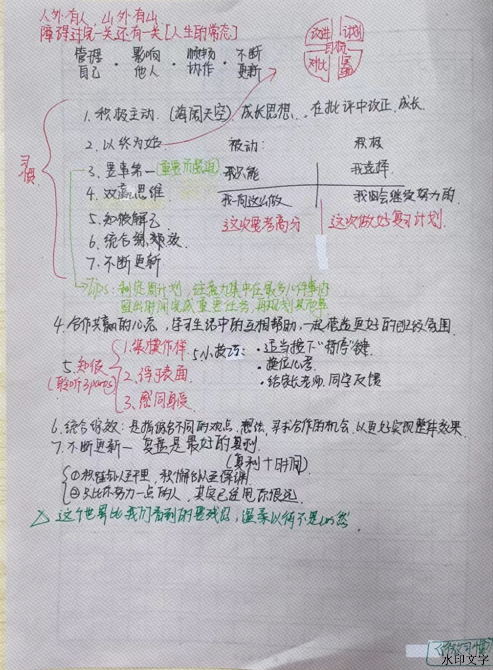 人外有人，山外有山
障碍过完一关还有一关[人生的常态]
管理自己 · 影响他人 · 顺畅协作 · 不断更新
改进 计划
对比 实施
习惯
1. 积极主动.(海阔天空) 成长思想，在批评中改正，成长
2. 以终为始
3. 要事第一(重要而紧迫)
4. 双赢思维
5. 知彼解己
6. 统合综效
7. 不断更新
被动: 积极
我不能 我选择
我一向这么做 我会继续努力的
这次要考高分 这次做好复习计划
Tips: 制定周计划，注意力集中在最多几件事内
4. 合作共赢的心态，学习生活中的互相帮助，一起营造更好的班级氛围
5. 知彼
1. 装模作样
2. 浮于表面
3. 感同身受
5小技巧:
· 适当按下“暂停”键
· 换位思考
· 给家长老师，同学反馈
6. 统合综效: 是指结合不同的观点，想法，寻求合作的机会，以更好实现整体效果
7. 不断更新— 复盘是最好的复利
(复利+时间)
①积跬步以至千里，积懈怠以至深渊
②只比你努力一点的人，其实已经甩你很远
△ 这个世界比我们看到的要残忍，温柔以待不是必然
水印文字